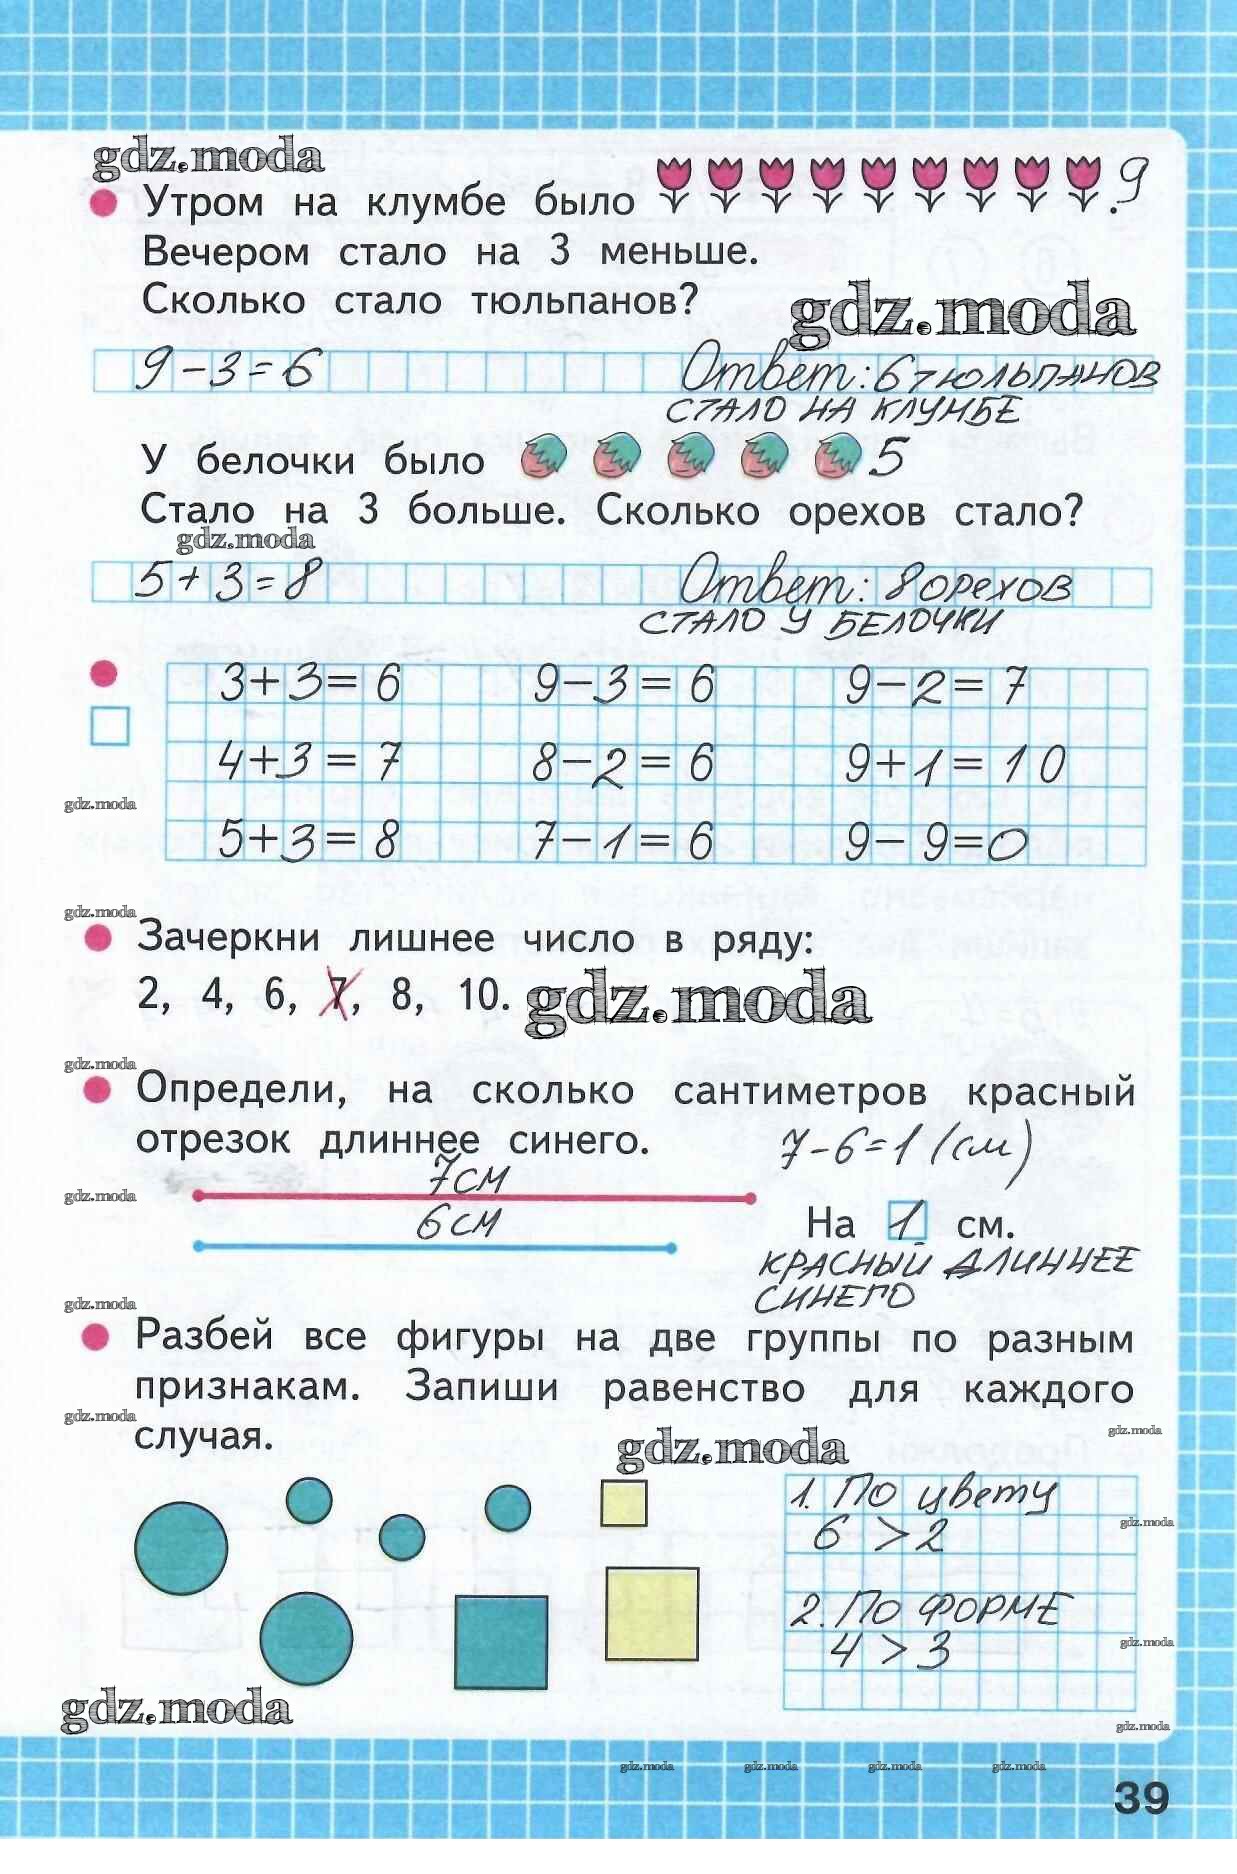 gdz.moda
Утром на клумбе было 9
.
Вечером стало на 3 меньше.
Сколько стало тюльпанов?
gdz.moda
9-3=6 Ответ: 6 тюльпанов
стало на клумбе
У белочки было 5
Стало на 3 больше. Сколько орехов стало?
gdz.moda
5+3=8 Ответ: 8 орехов
стало у белочки
3+3=6 9-3=6 9-2=7
4+3=7 8-2=6 9+1=10
gdz.moda
5+3=8 7-1=6 9-9=0
gdz.moda
Зачеркни лишнее число в ряду:
2, 4, 6, 7, 8, 10.
gdz.moda
gdz.moda
Определи, на сколько сантиметров красный
отрезок длиннее синего. 7-6=1 (см)
7см
gdz.moda
6см
На 1 см.
красный длиннее
синего
gdz.moda
Разбей все фигуры на две группы по разным
признакам. Запиши равенство для каждого
gdz.moda
случая.
gdz.moda
gdz.moda
1. По цвету
6 > 2
gdz.moda
2. По форме
4 > 3
gdz.moda
gdz.moda
gdz.moda
gdz.moda gdz.moda gdz.moda gdz.moda
39